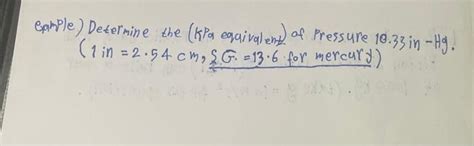 example) Determine the (KPa equivalent) of Pressure 10.33 in-Hg.
(1 in = 2.54 cm, S.G. = 13.6 for mercury)